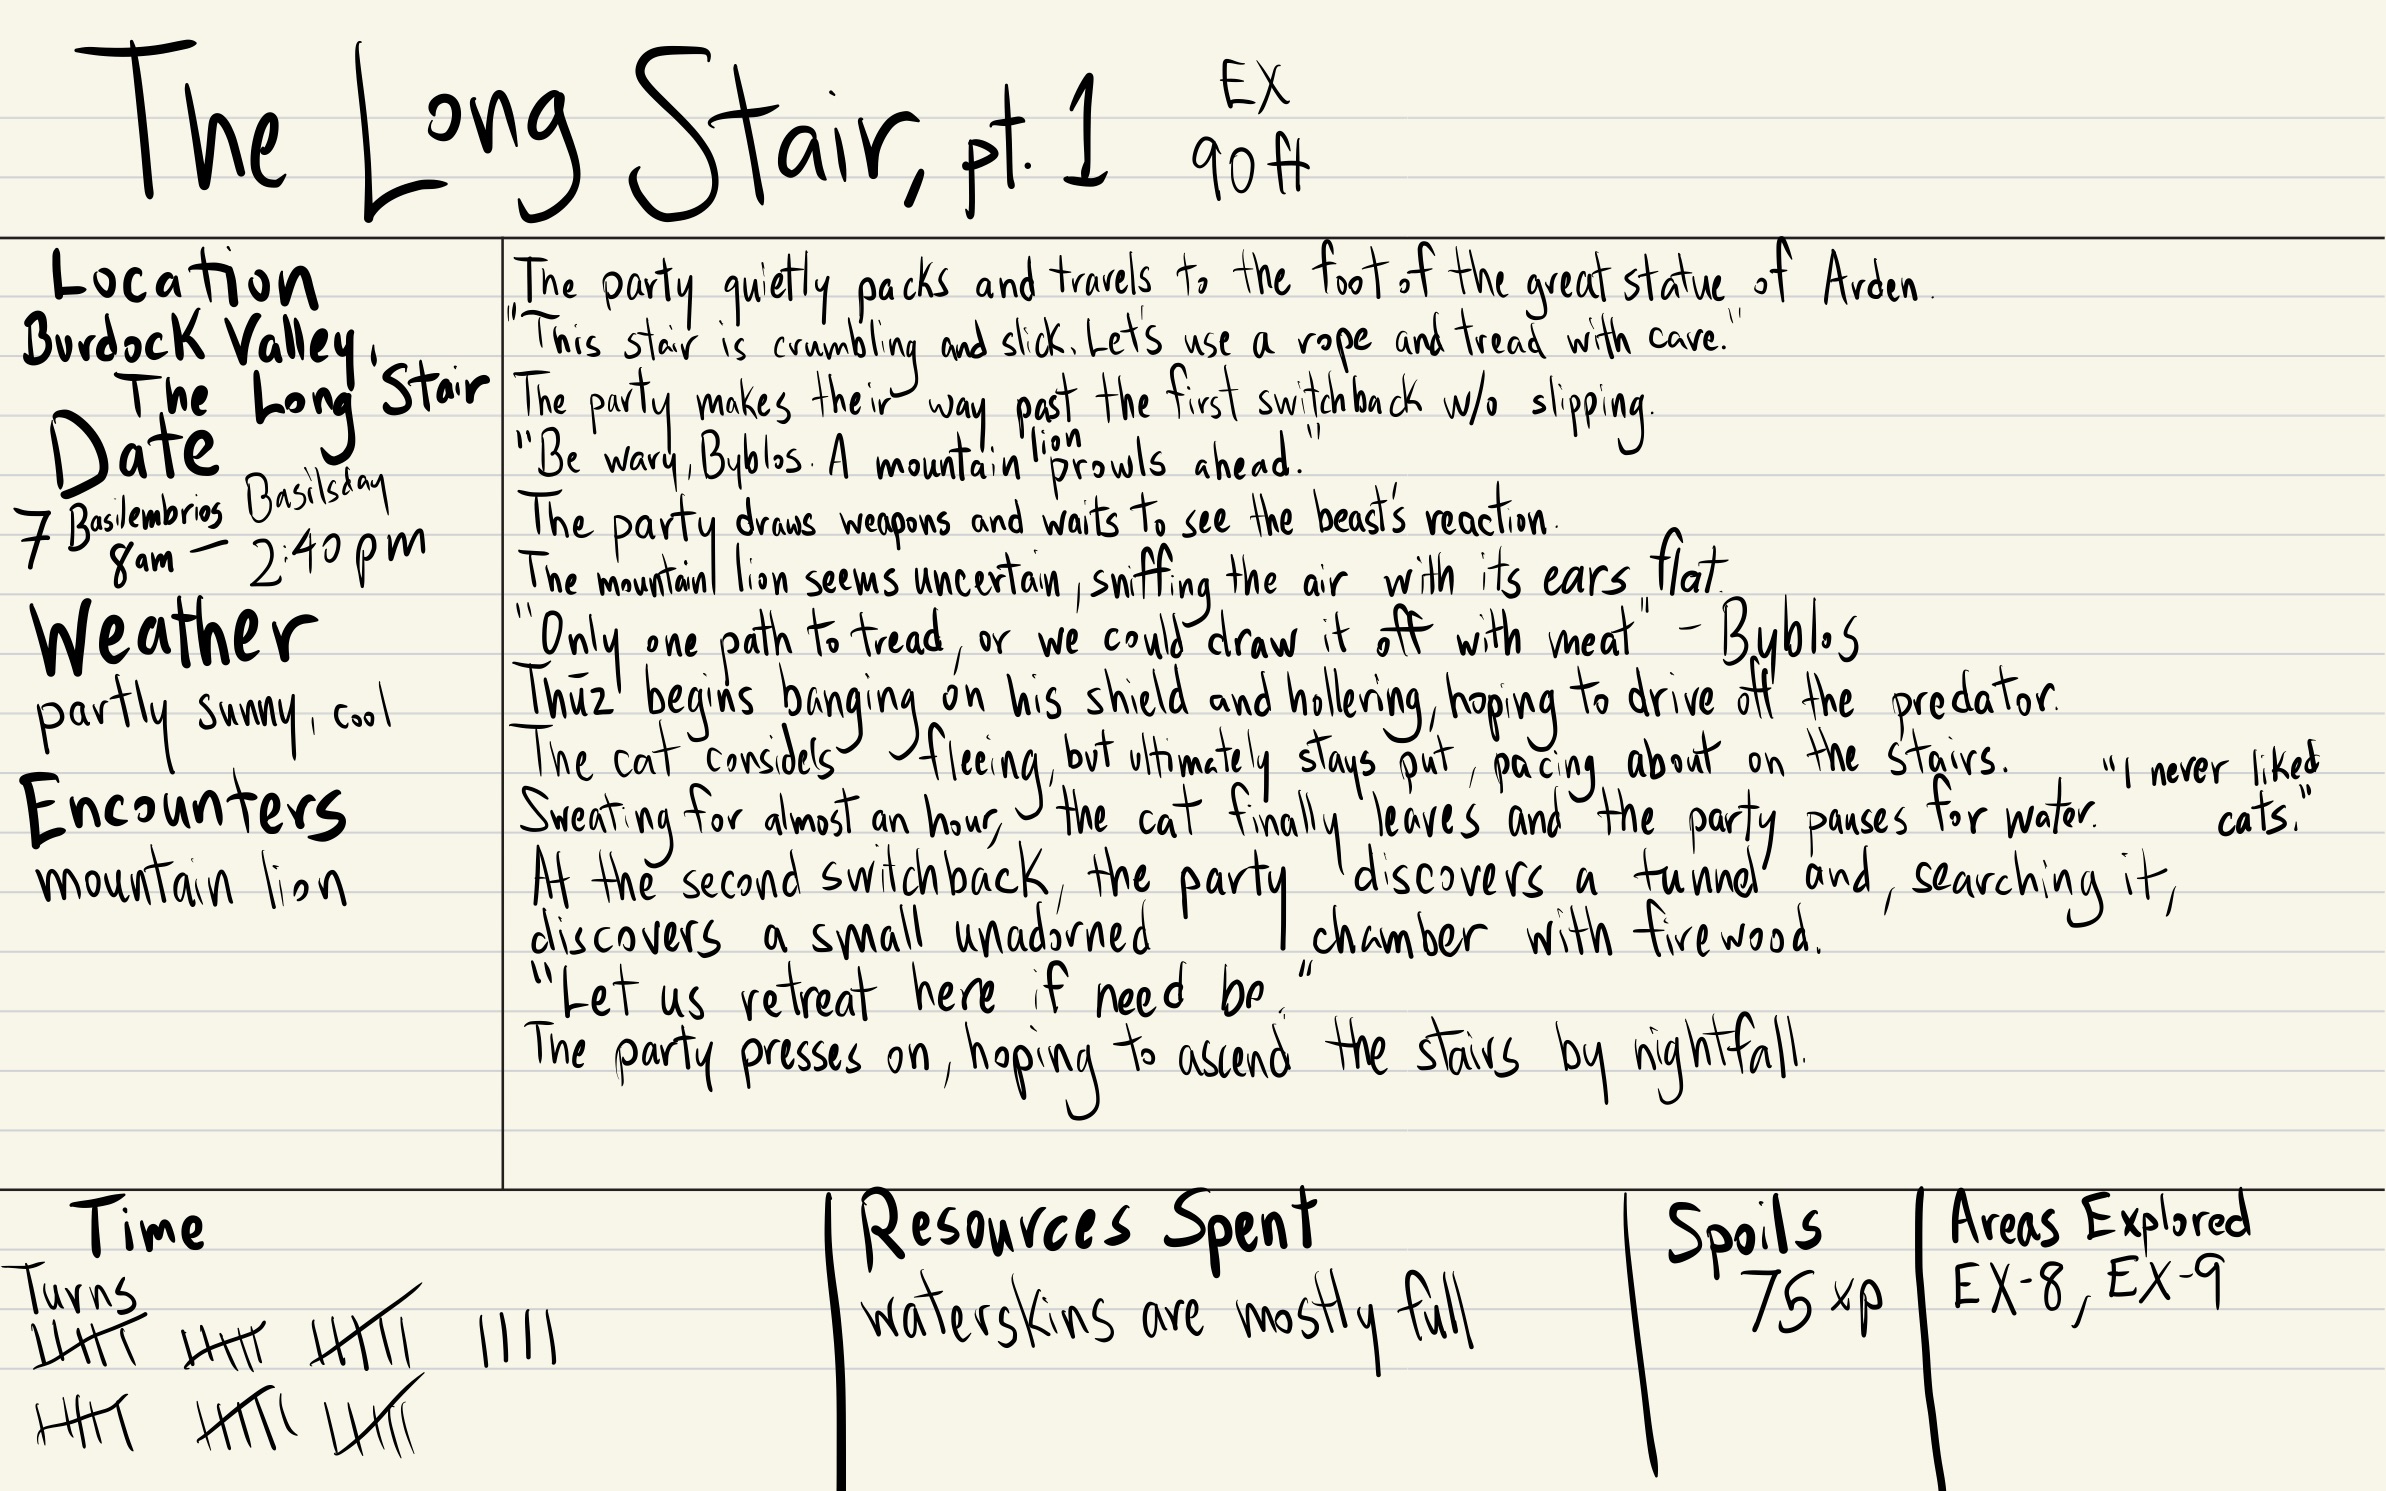 The Long Stair, pt. 1
EX
90 ft
Location
Burdock Valley,
The Long Stair
Date
7 Basilembrios Basilsday
8am – 2:40 pm
Weather
partly sunny, cool
Encounters
mountain lion
The party quietly packs and travels to the foot of the great statue of Arden.
"This stair is crumbling and slick. Let's use a rope and tread with care."
The party makes their way past the first switchback w/o slipping.
"Be wary, Byblos. A mountain lion prowls ahead."
The party draws weapons and waits to see the beast's reaction.
The mountain lion seems uncertain, sniffing the air with its ears flat.
"Only one path to tread, or we could draw it off with meat" – Byblos
Thūz begins banging on his shield and hollering, hoping to drive off the predator.
The cat considers fleeing, but ultimately stays put, pacing about on the stairs.
Sweating for almost an hour, the cat finally leaves and the party pauses for water.
"I never liked
cats."
At the second switchback, the party discovers a tunnel and, searching it,
discovers a small unadorned chamber with firewood.
"Let us retreat here if need be."
The party presses on, hoping to ascend the stairs by nightfall.
Time
Turns
Resources Spent
waterskins are mostly full
Spoils
75 xp
Areas Explored
EX-8, EX-9